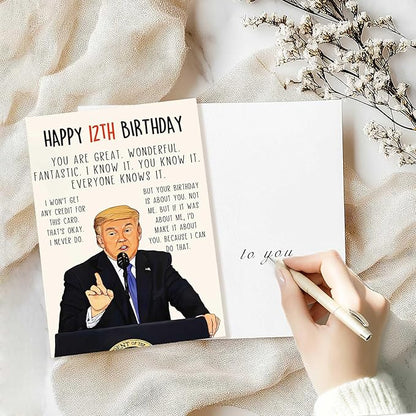 HAPPY 12TH BIRTHDAY
YOU ARE GREAT. WONDERFUL.
FANTASTIC. I KNOW IT. YOU KNOW IT.
EVERYONE KNOWS IT.
I WON'T GET
ANY CREDIT FOR
THIS CARD.
THAT'S OKAY.
I NEVER DO.
BUT YOUR BIRTHDAY
IS ABOUT YOU. NOT
ME. BUT IF IT WAS
ABOUT ME, I'D
MAKE IT ABOUT
YOU. BECAUSE I CAN
DO THAT.
ENT OF
to you